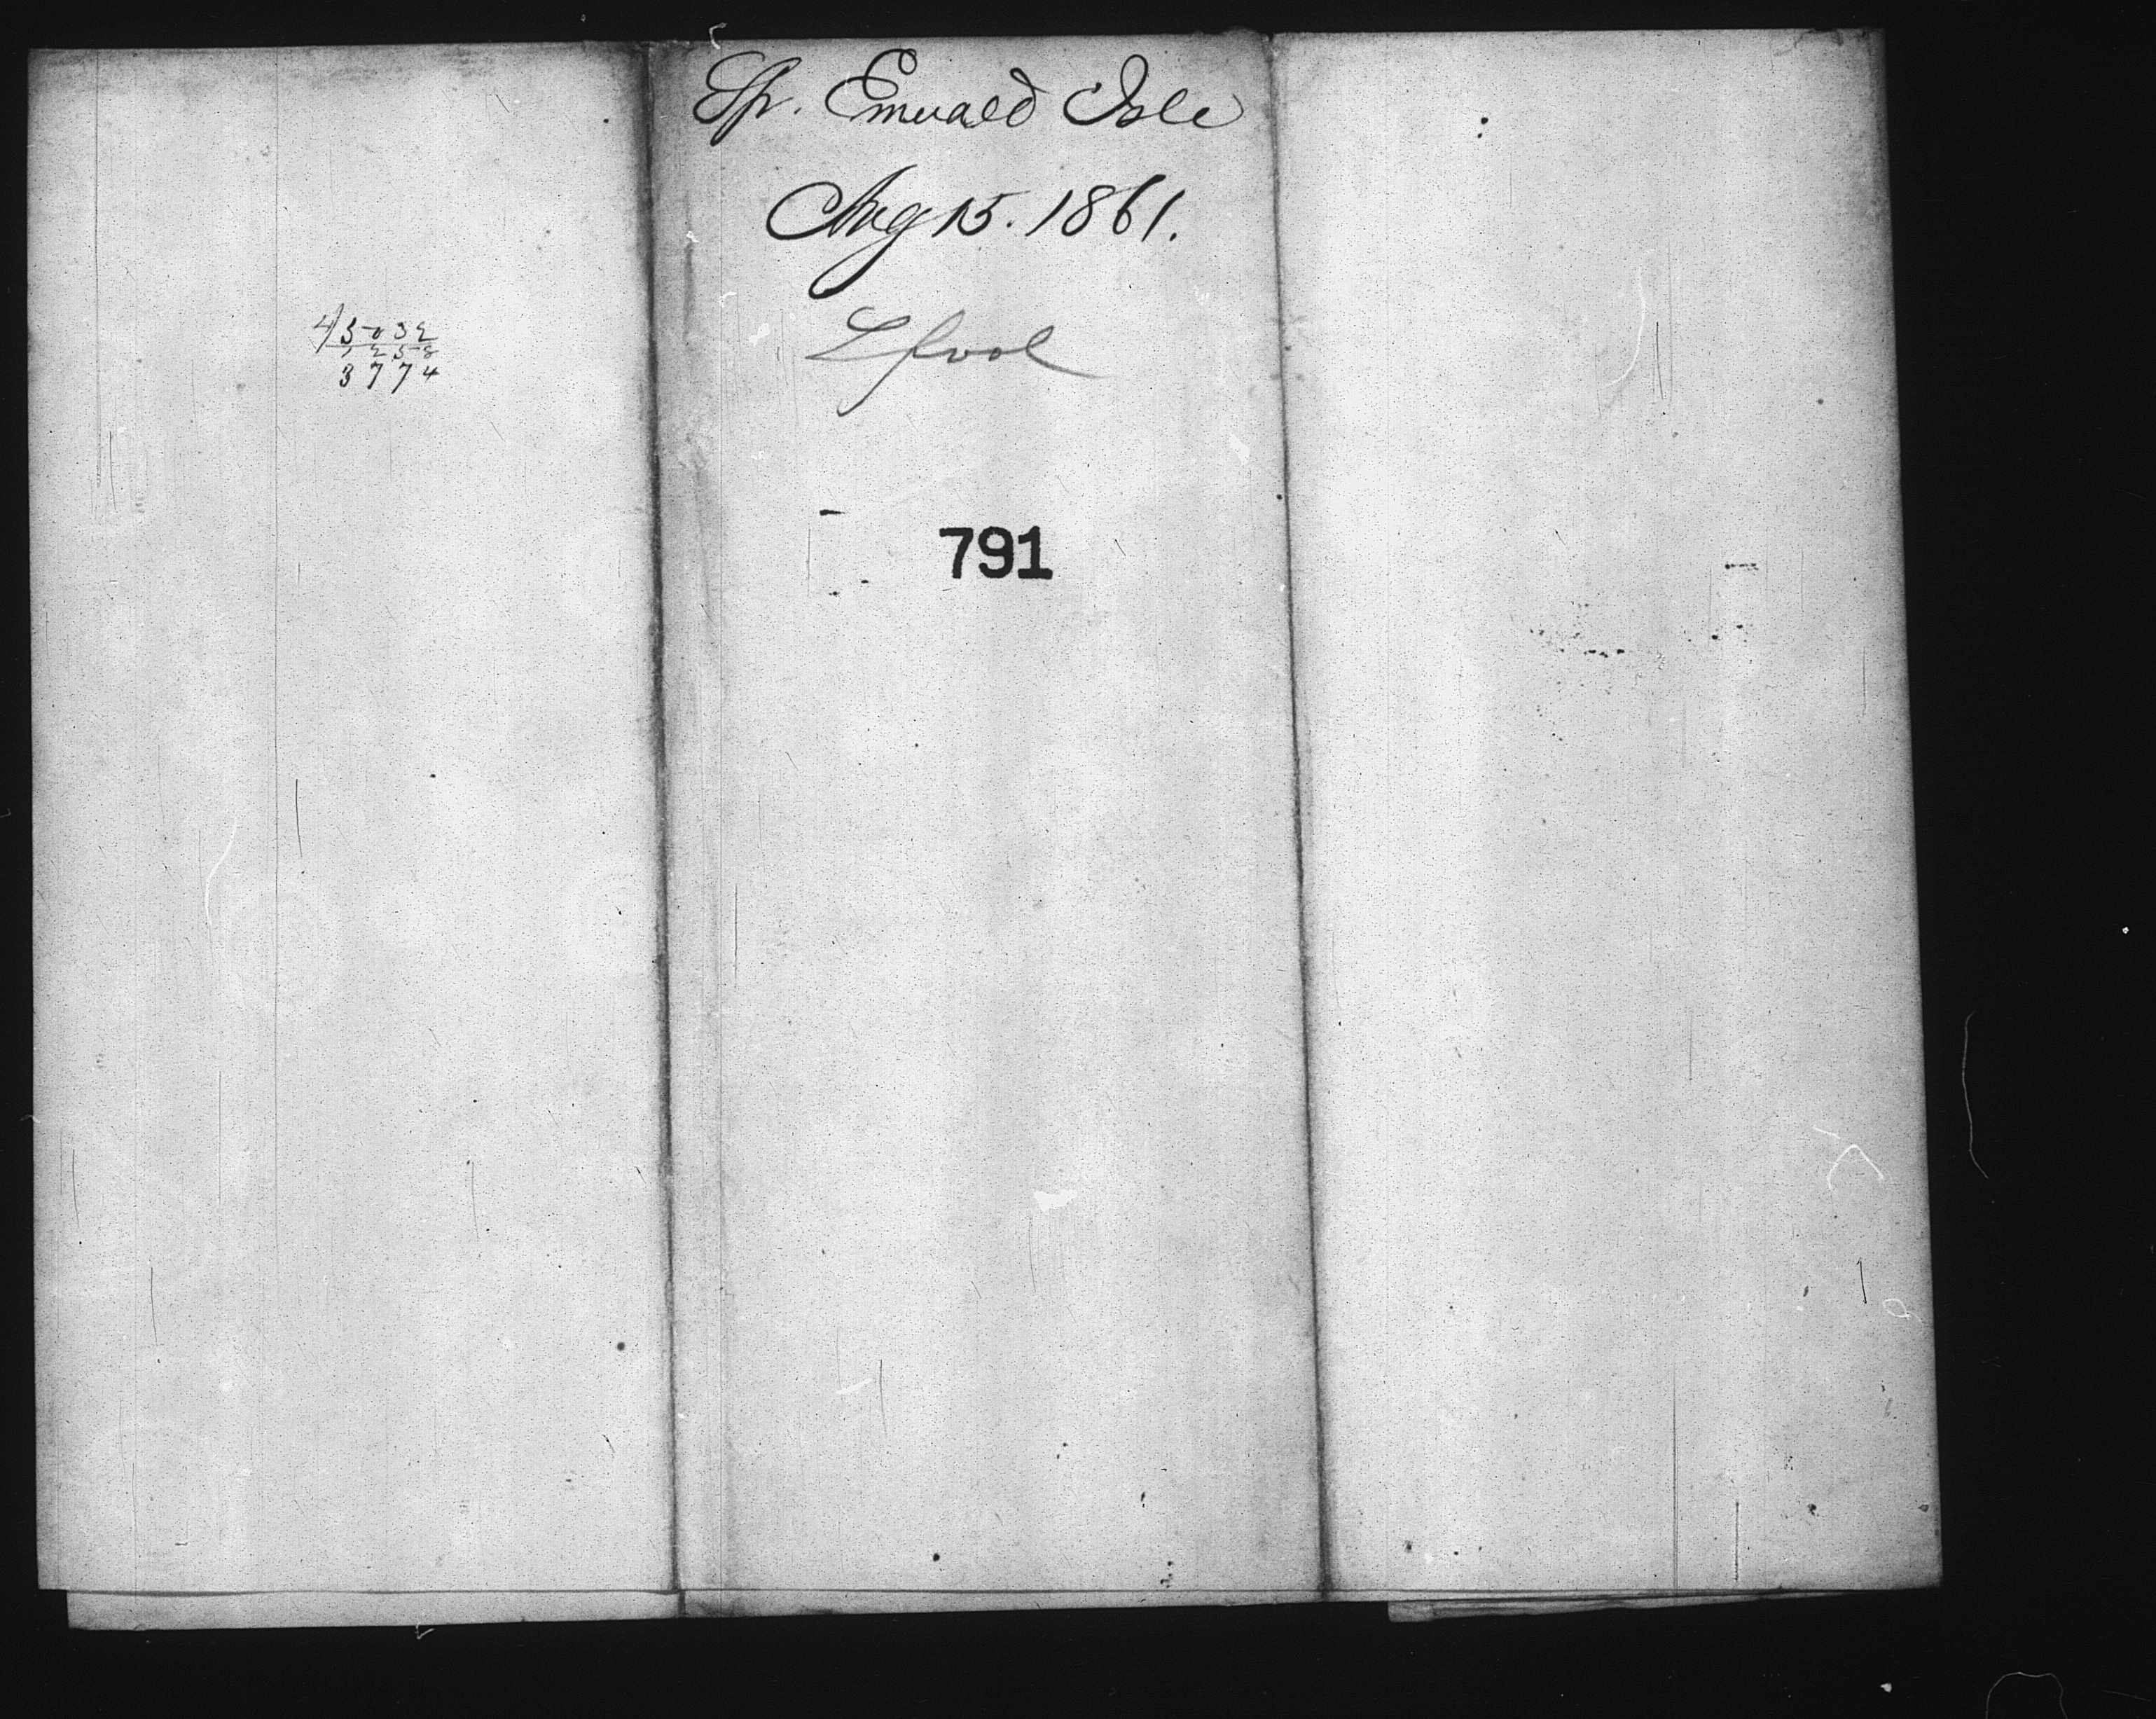 Sp. Emerald Isle
Aug 15. 1861.
Lpool
791
4/5032
1258
3774